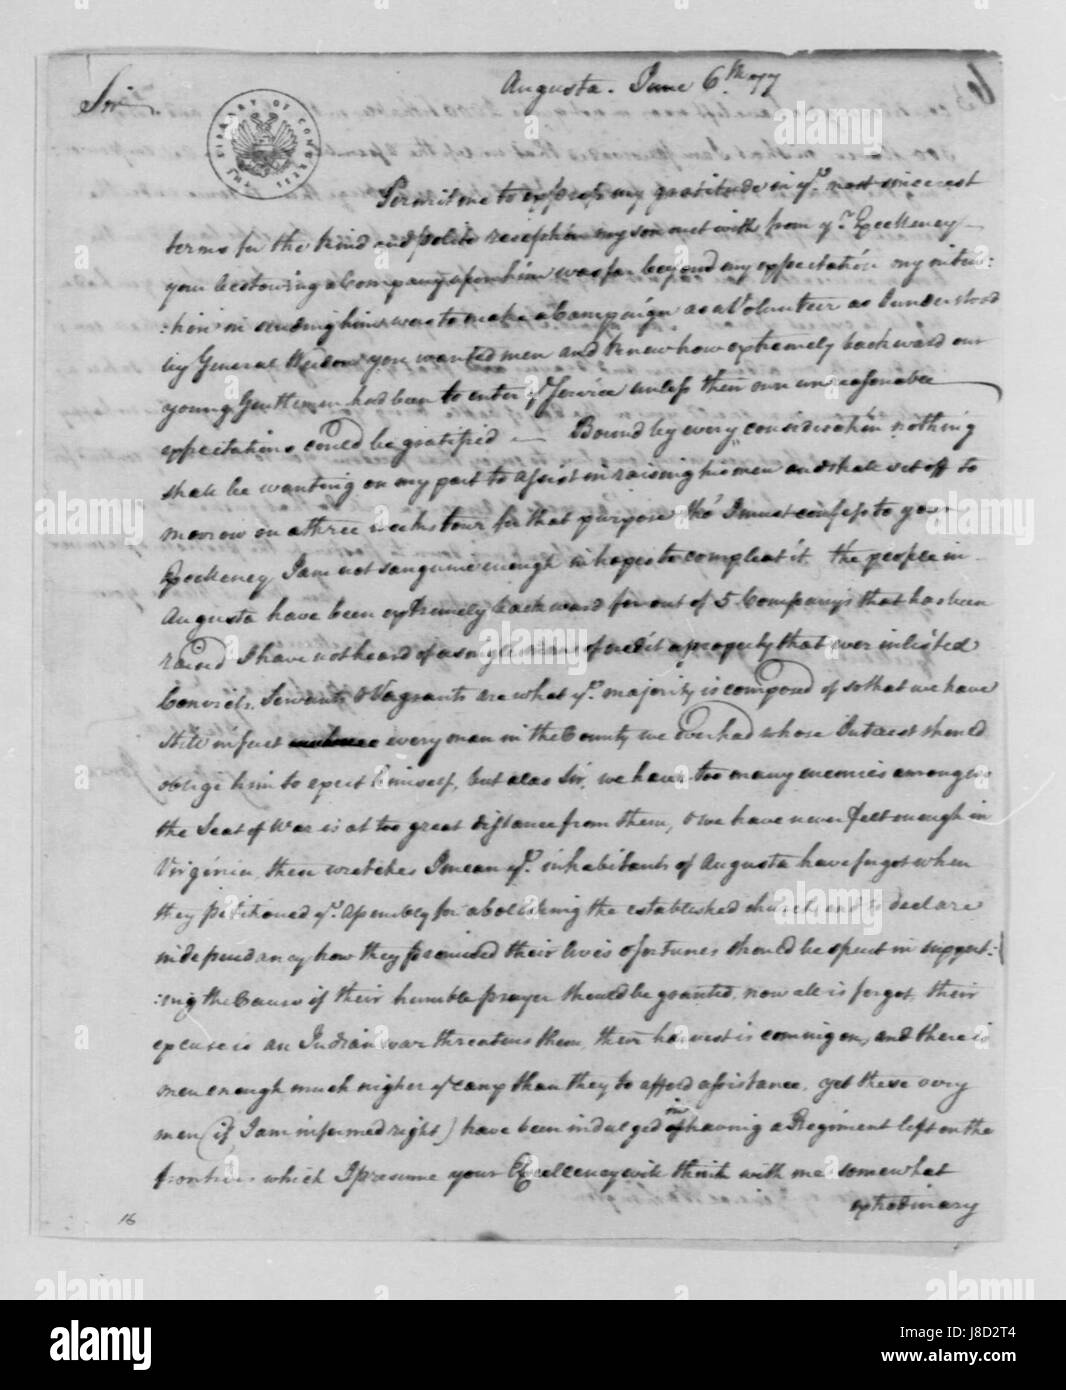 Augusta. June 6.th 77
Sir
LIBRARY OF CONGRESS
Permit me to express my gratitude in ye. most sincerest
terms for the kind and polite reception my son met with from yr. Excelleney
your bestowing a Company upon him was far beyond my expectation my inten:
:tion in sending him was to make a Campaign as a Volunteer as I understood
by General Weedon you wanted men and knew how extremely backward our
young Gentlemen had been to enter ye Service unless their own unreasonable
expectations could be gratified — Bound by every consideration nothing
shall be wanting on my part to assist in raising his men and shall set off to
morrow on a three weeks tour for that purpose tho' I must confess to your
Excelleney I am not sanguine enough in hopes to compleat it. the people in
Augusta have been extremely backward for out of 5 Companys that has been
raised I have not heard of a single man of credit a property that ever inlisted
Convicts, Servants & Vagrants are what ye. majority is composd of so that we have
still in fact every man in the County we ever had whose Interest should
oblige him to exert himself, but alas Sir, we have too many enemies among us
the Seat of War is at too great distance from them, & we have never felt enough in
Virginia, these wretches I mean ye. inhabitants of Augusta have forgot when
they petitioned ye. Assembly for abolishing the established church and to declare
independancy how they promised their lives & fortunes should be spent in support:
:ing the Cause if their humble prayer should be granted. now all is forgot, their
excuse is an Indian war threatens them, their harvest is coming on, and there is
men enough much nigher ye camp than they to afford assistance. yet these very
men (if I am informed right) have been indulged in having a Regiment left on the
frontiers which I presume your Excelleney will think with me somewhat
extrodinary
16
alamy stock photo
alamy
a
alamy
Image ID: J8D2T4
www.alamy.com